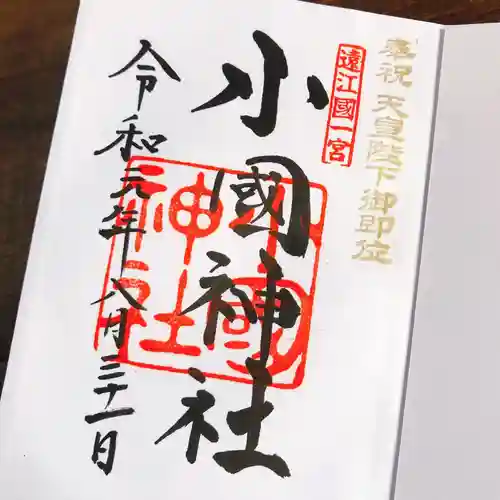 奉祝 天皇陛下御即位
遠江國一宮
小國神社
小國神社
令和元年八月三十一日